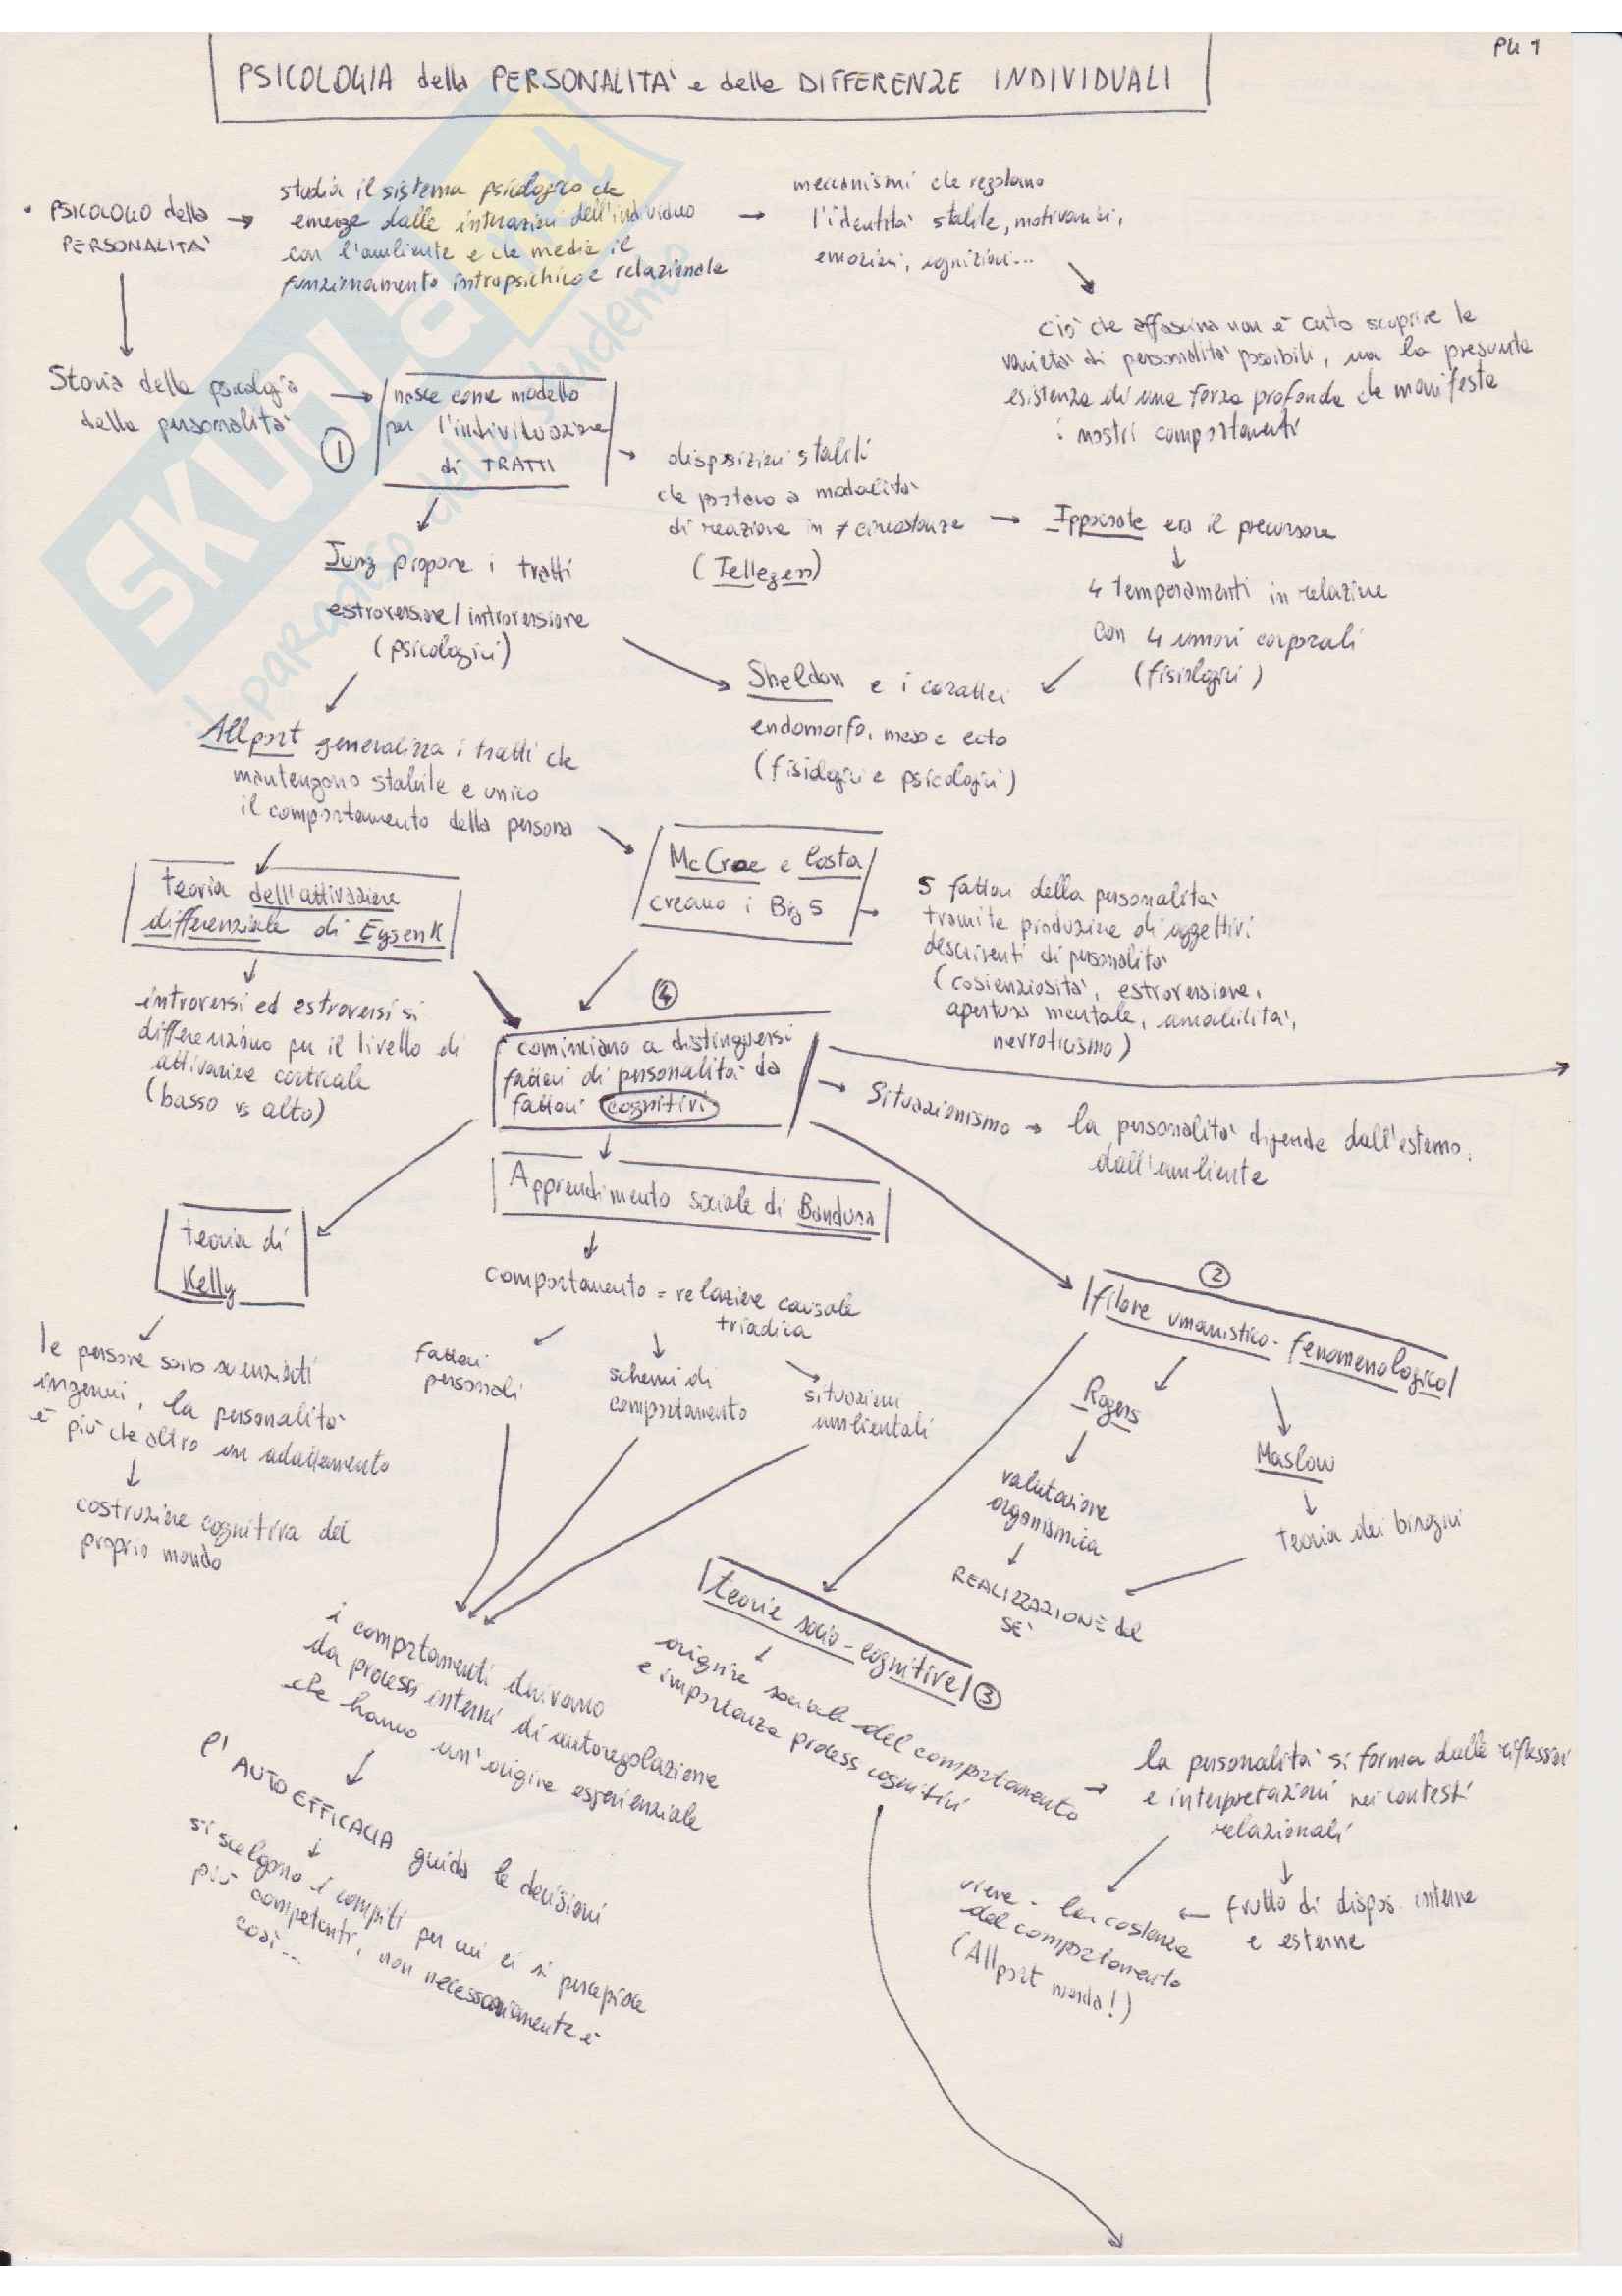 PG 1
PSICOLOGIA della PERSONALITA' e delle DIFFERENZE INDIVIDUALI
• PSICOLOGO della
PERSONALITA'
studia il sistema psicologico che
emerge dalle interazioni dell'individuo
con l'ambiente e che media il
funzionamento intrapsichico e relazionale
meccanismi che regolano
l'identità stabile, motivazioni,
emozioni, cognizioni...
ciò che affascina non è certo scoprire le
varietà di personalità possibili, ma la presunta
esistenza di una forza profonda che manifesta
i nostri comportamenti
Storia della psicologia
della personalità
1
nasce come modello
per l'individuazione
di TRATTI
disposizioni stabili
che portano a modalità
di reazione in ≠ circostanze
(Tellegen)
Ippocrate era il precursore
4 temperamenti in relazione
con 4 umori corporali
(fisiologici)
Jung propone i tratti
estroversione/introversione
(psicologici)
Sheldon e i caratteri
endomorfo, meso e ecto
(fisiologici e psicologici)
Allport generalizza i tratti che
mantengono stabile e unico
il comportamento della persona
McCrae e Costa
creano i Big 5
5 fattori della personalità
tramite produzione di aggettivi
descriventi di personalità
(coscienziosità, estroversione,
apertura mentale, amabilità,
nevroticismo)
teoria dell'attivazione
differenziale di EysenK
introversi ed estroversi si
differenziano per il livello di
attivazione corticale
(basso vs alto)
4
cominciano a distinguersi
fattori di personalità da
fattori cognitivi
Situazionismo → la personalità dipende dall'esterno,
dall'ambiente
Apprendimento sociale di Bandura
comportamento = relazione causale
triadica
fattori
personali
schemi di
comportamento
situazioni
ambientali
teoria di
Kelly
le persone sono scienziati
ingenui, la personalità
è più che altro un adattamento
costruzione cognitiva del
proprio mondo
2
filone umanistico-fenomenologico
Rogers
valutazione
organismica
Maslow
teoria dei bisogni
REALIZZAZIONE del
SE'
i comportamenti derivano
da processi interni di autoregolazione
che hanno un'origine esperienziale
l'AUTOEFFICACIA guida le decisioni
si scelgono i compiti per cui ci si percepisce
più competenti, non necessariamente è
così...
teorie socio-cognitive 3
origine sociale del comportamento
e importanza processi cognitivi
la personalità si forma dalle riflessioni
e interpretazioni nei contesti
relazionali
frutto di dispos. interne
e esterne
viene - la costanza
del comportamento
(Allport !)
SKUOLA.it
il paradiso dello studente